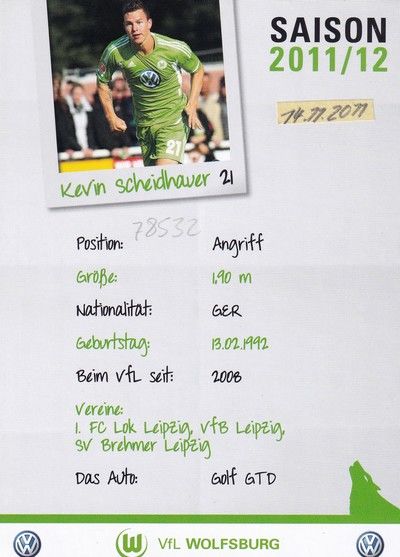 SAISON
2011/12
14.11.2011
21
Kevin Scheidhauer 21
78532
Position: Angriff
Größe: 1,90 m
Nationalität: GER
Geburtstag: 13.02.1992
Beim VfL seit: 2008
Vereine:
1. FC Lok Leipzig, VfB Leipzig,
SV Brehmer Leipzig
Das Auto: Golf GTD
VfL WOLFSBURG